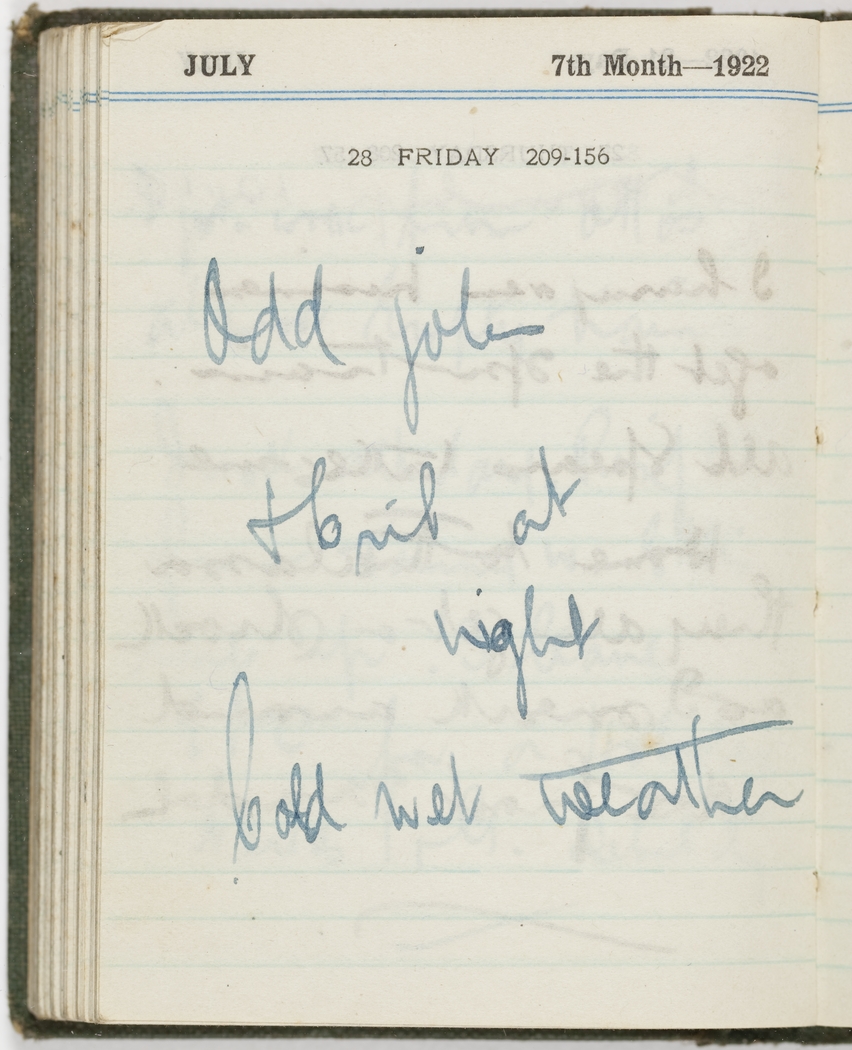 JULY 7th Month—1922
28 FRIDAY 209-156
Odd jobs
& Crib at
night
Cold wet weather